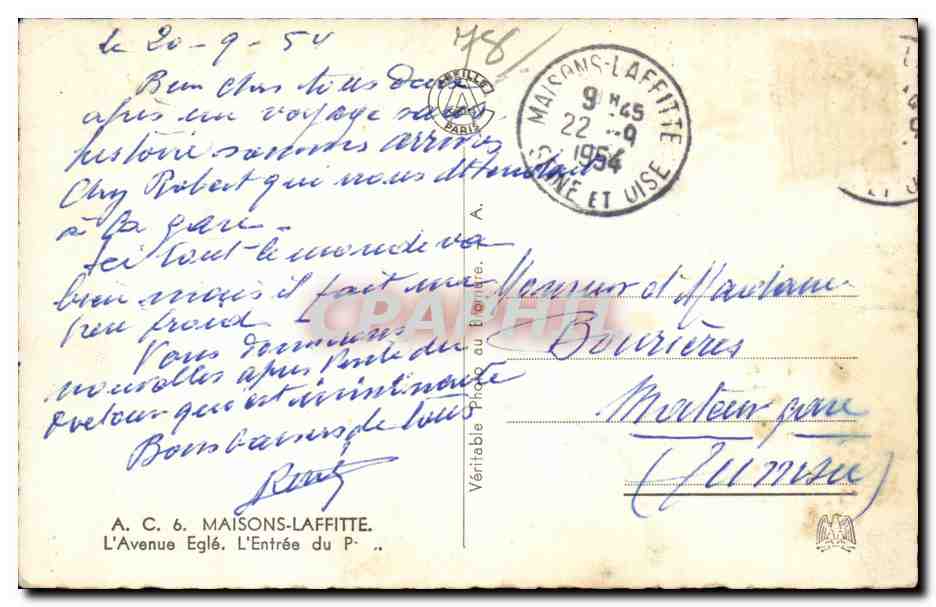 le 20-9-54
Bien chers tous deux
après un voyage sans
histoire sommes arrivés
Chez Robert qui nous attendait
à la gare.
Ici tout le monde va
bien mais il fait un
peu froid
Vous donnerons
nouvelles après visite du
retour qui est imminente
Bons baisers de tous
78
ABEILLE
PARIS
MAISONS-LAFFITTE
9H45
22-9
1954
SEINE ET OISE
Monsieur et Madame
Bourières
Mateur gare
(Tunisie)
Véritable Photo au Bromure. A. A.
CRAPHI
A. C. 6. MAISONS-LAFFITTE.
L'Avenue Eglé. L'Entrée du P